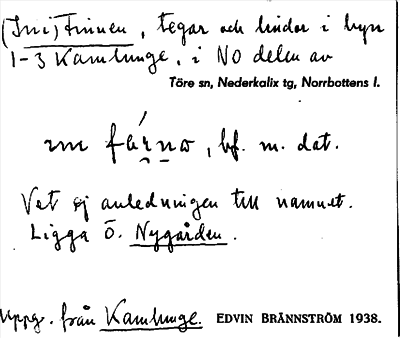 (Ini) Finnen, tegar och lindor i byn
1-3 Kamlunge, i NO delen av
Töre sn, Nederkalix tg, Norrbottens l.
bf. m. dat.
Vet ej anledningen till namnet.
Ligga Ö. Nygården.
Uppg. från Kamlunge. EDVIN BRÄNNSTRÖM 1938.